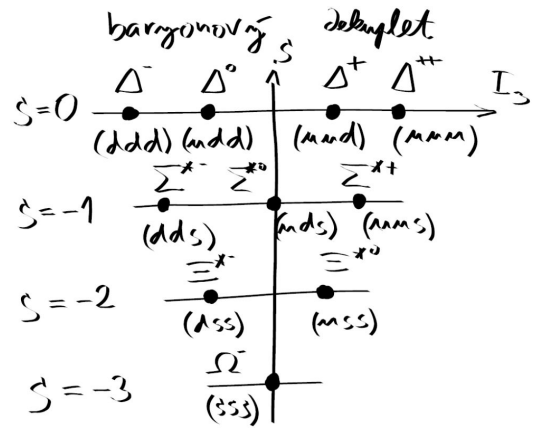 baryonový dekuplet
S
Δ⁻ Δ⁰ Δ⁺ Δ⁺⁺ I₃
S=0
(ddd) (udd) (uud) (uuu)
Σ*⁻ Σ*⁰ Σ*⁺
S=-1
(dds) (uds) (uus)
Ξ*⁻ Ξ*⁰
S=-2
(dss) (uss)
Ω⁻
S=-3
(sss)